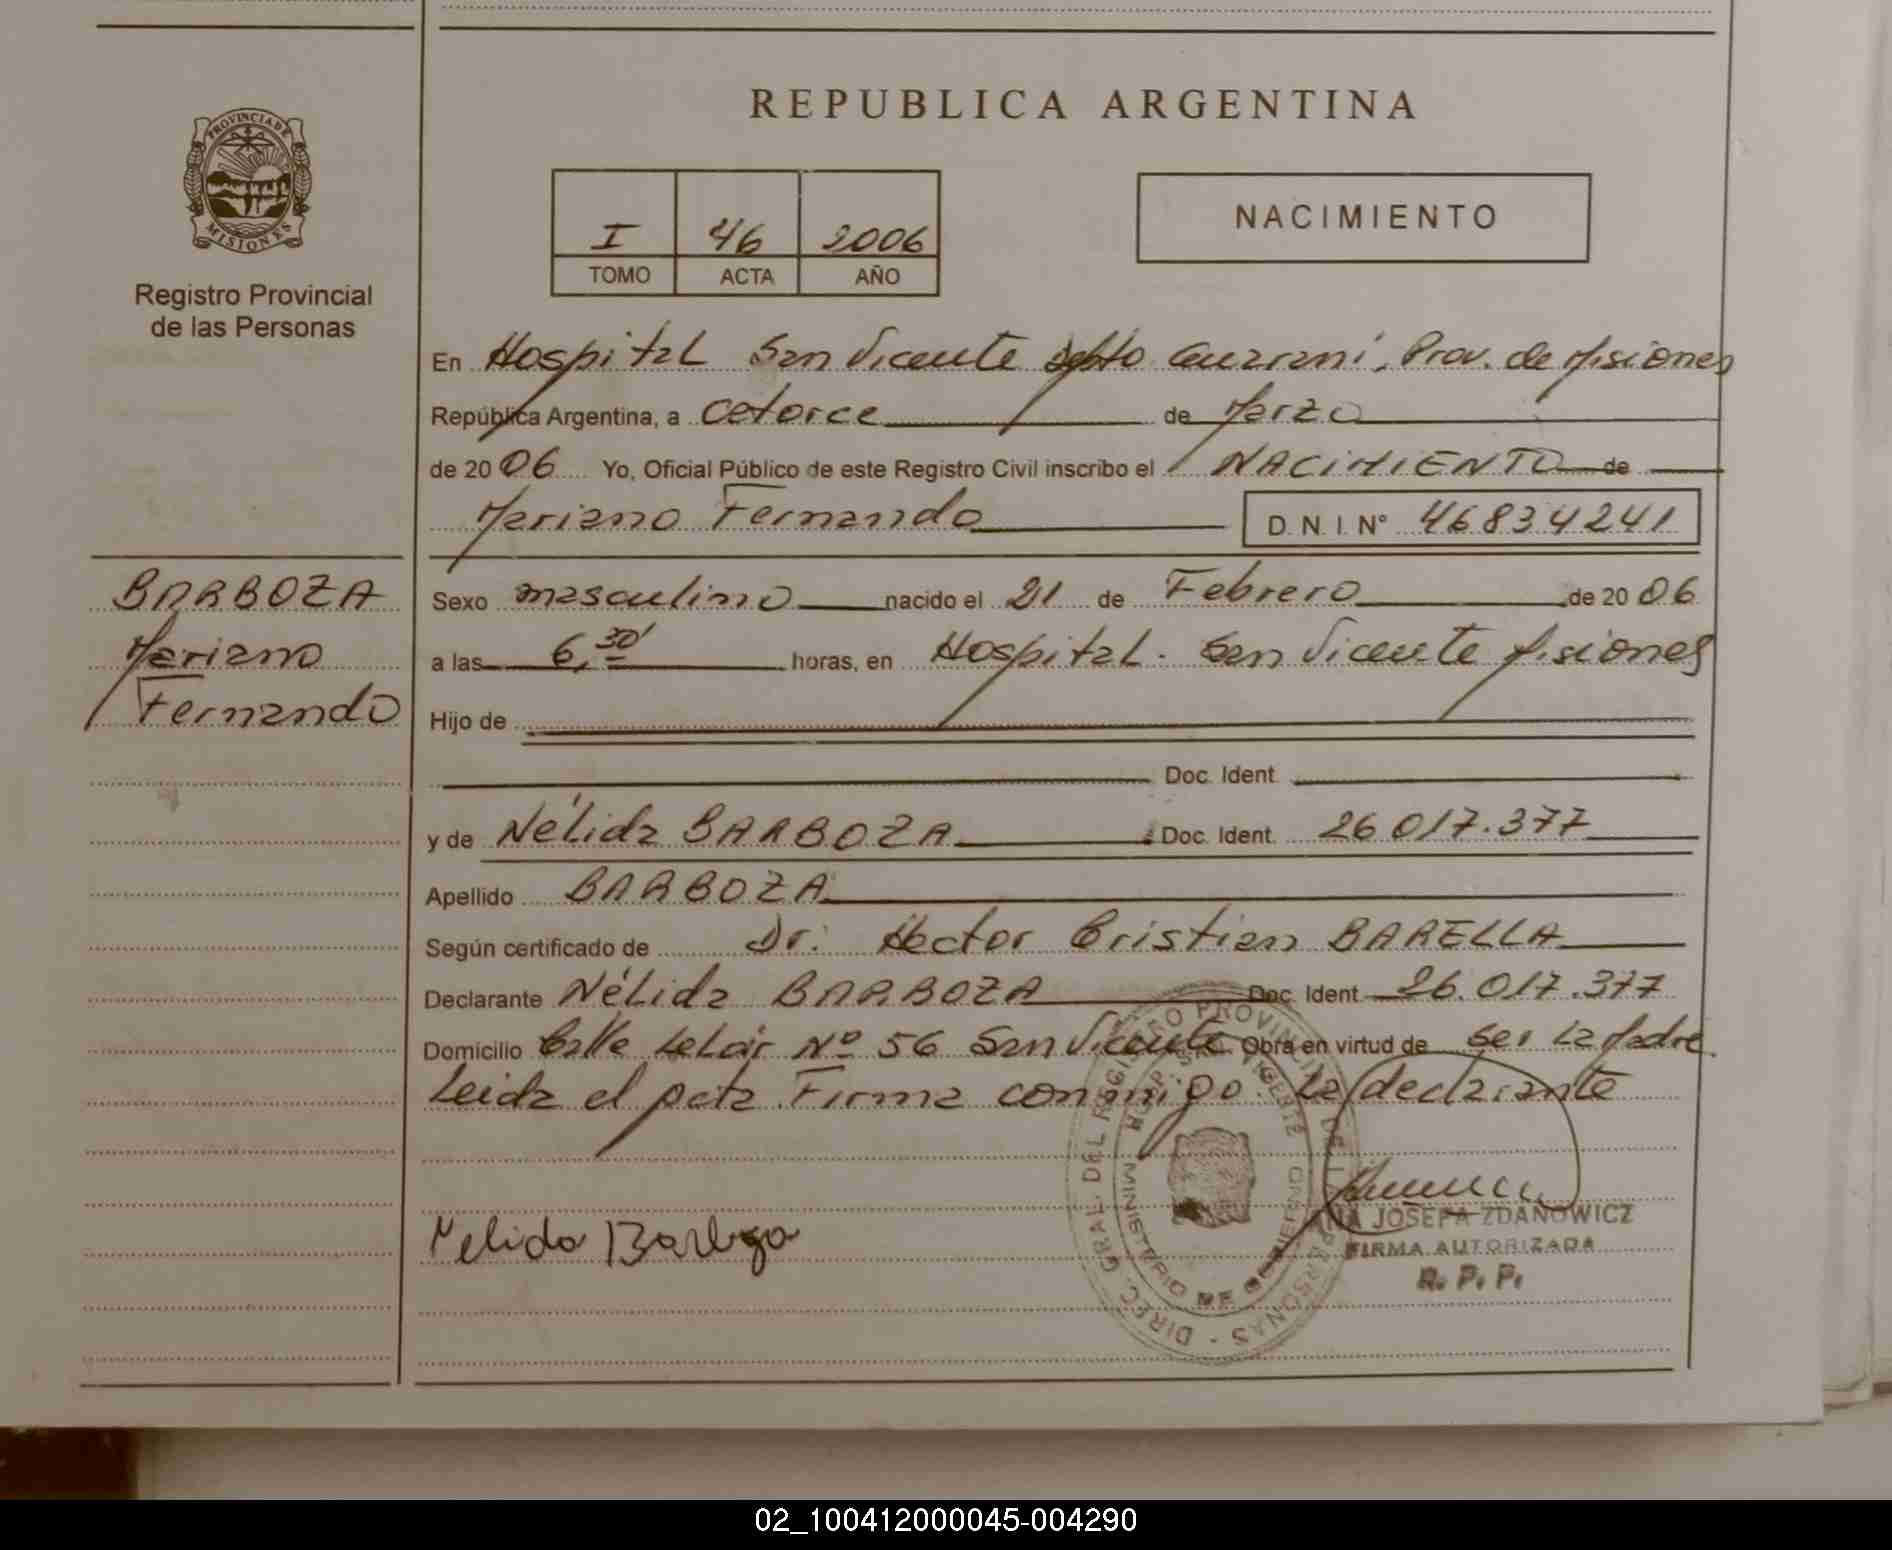 REPUBLICA ARGENTINA
PROVINCIA DE
MISIONES
Registro Provincial
de las Personas
I 46 2006
TOMO ACTA AÑO
NACIMIENTO
En Hospital San Vicente Dpto Guarani, Prov. de Misiones
República Argentina, a Catorce de Marzo
de 2006 Yo, Oficial Público de este Registro Civil inscribo el NACIMIENTO de
Mariano Fernando D.N.I. N° 46834241
BARBOZA
Mariano
Fernando
Sexo masculino nacido el 21 de Febrero de 2006
a las 6,30' horas, en Hospital. San Vicente Misiones
Hijo de
Doc. Ident.
y de Nélida BARBOZA Doc. Ident. 26.017.377
Apellido BARBOZA
Según certificado de Dr: Hector Cristian BARELLA
Declarante Nélida BARBOZA Doc. Ident. 26.017.377
Domicilio Calle Nº 56 San Vicente. Obra en virtud de ser La Madre.
Leida el Firma conmigo La declarante
Nelida Barboza
DIREC. GRAL. DEL REGISTRO PROVINCIAL DE LAS PERSONAS
MINISTERIO DE GOBIERNO
HOSP. S. VICENTE
ANA JOSEFA ZDANOWICZ
FIRMA AUTORIZADA
R. P. P.
02_100412000045-004290